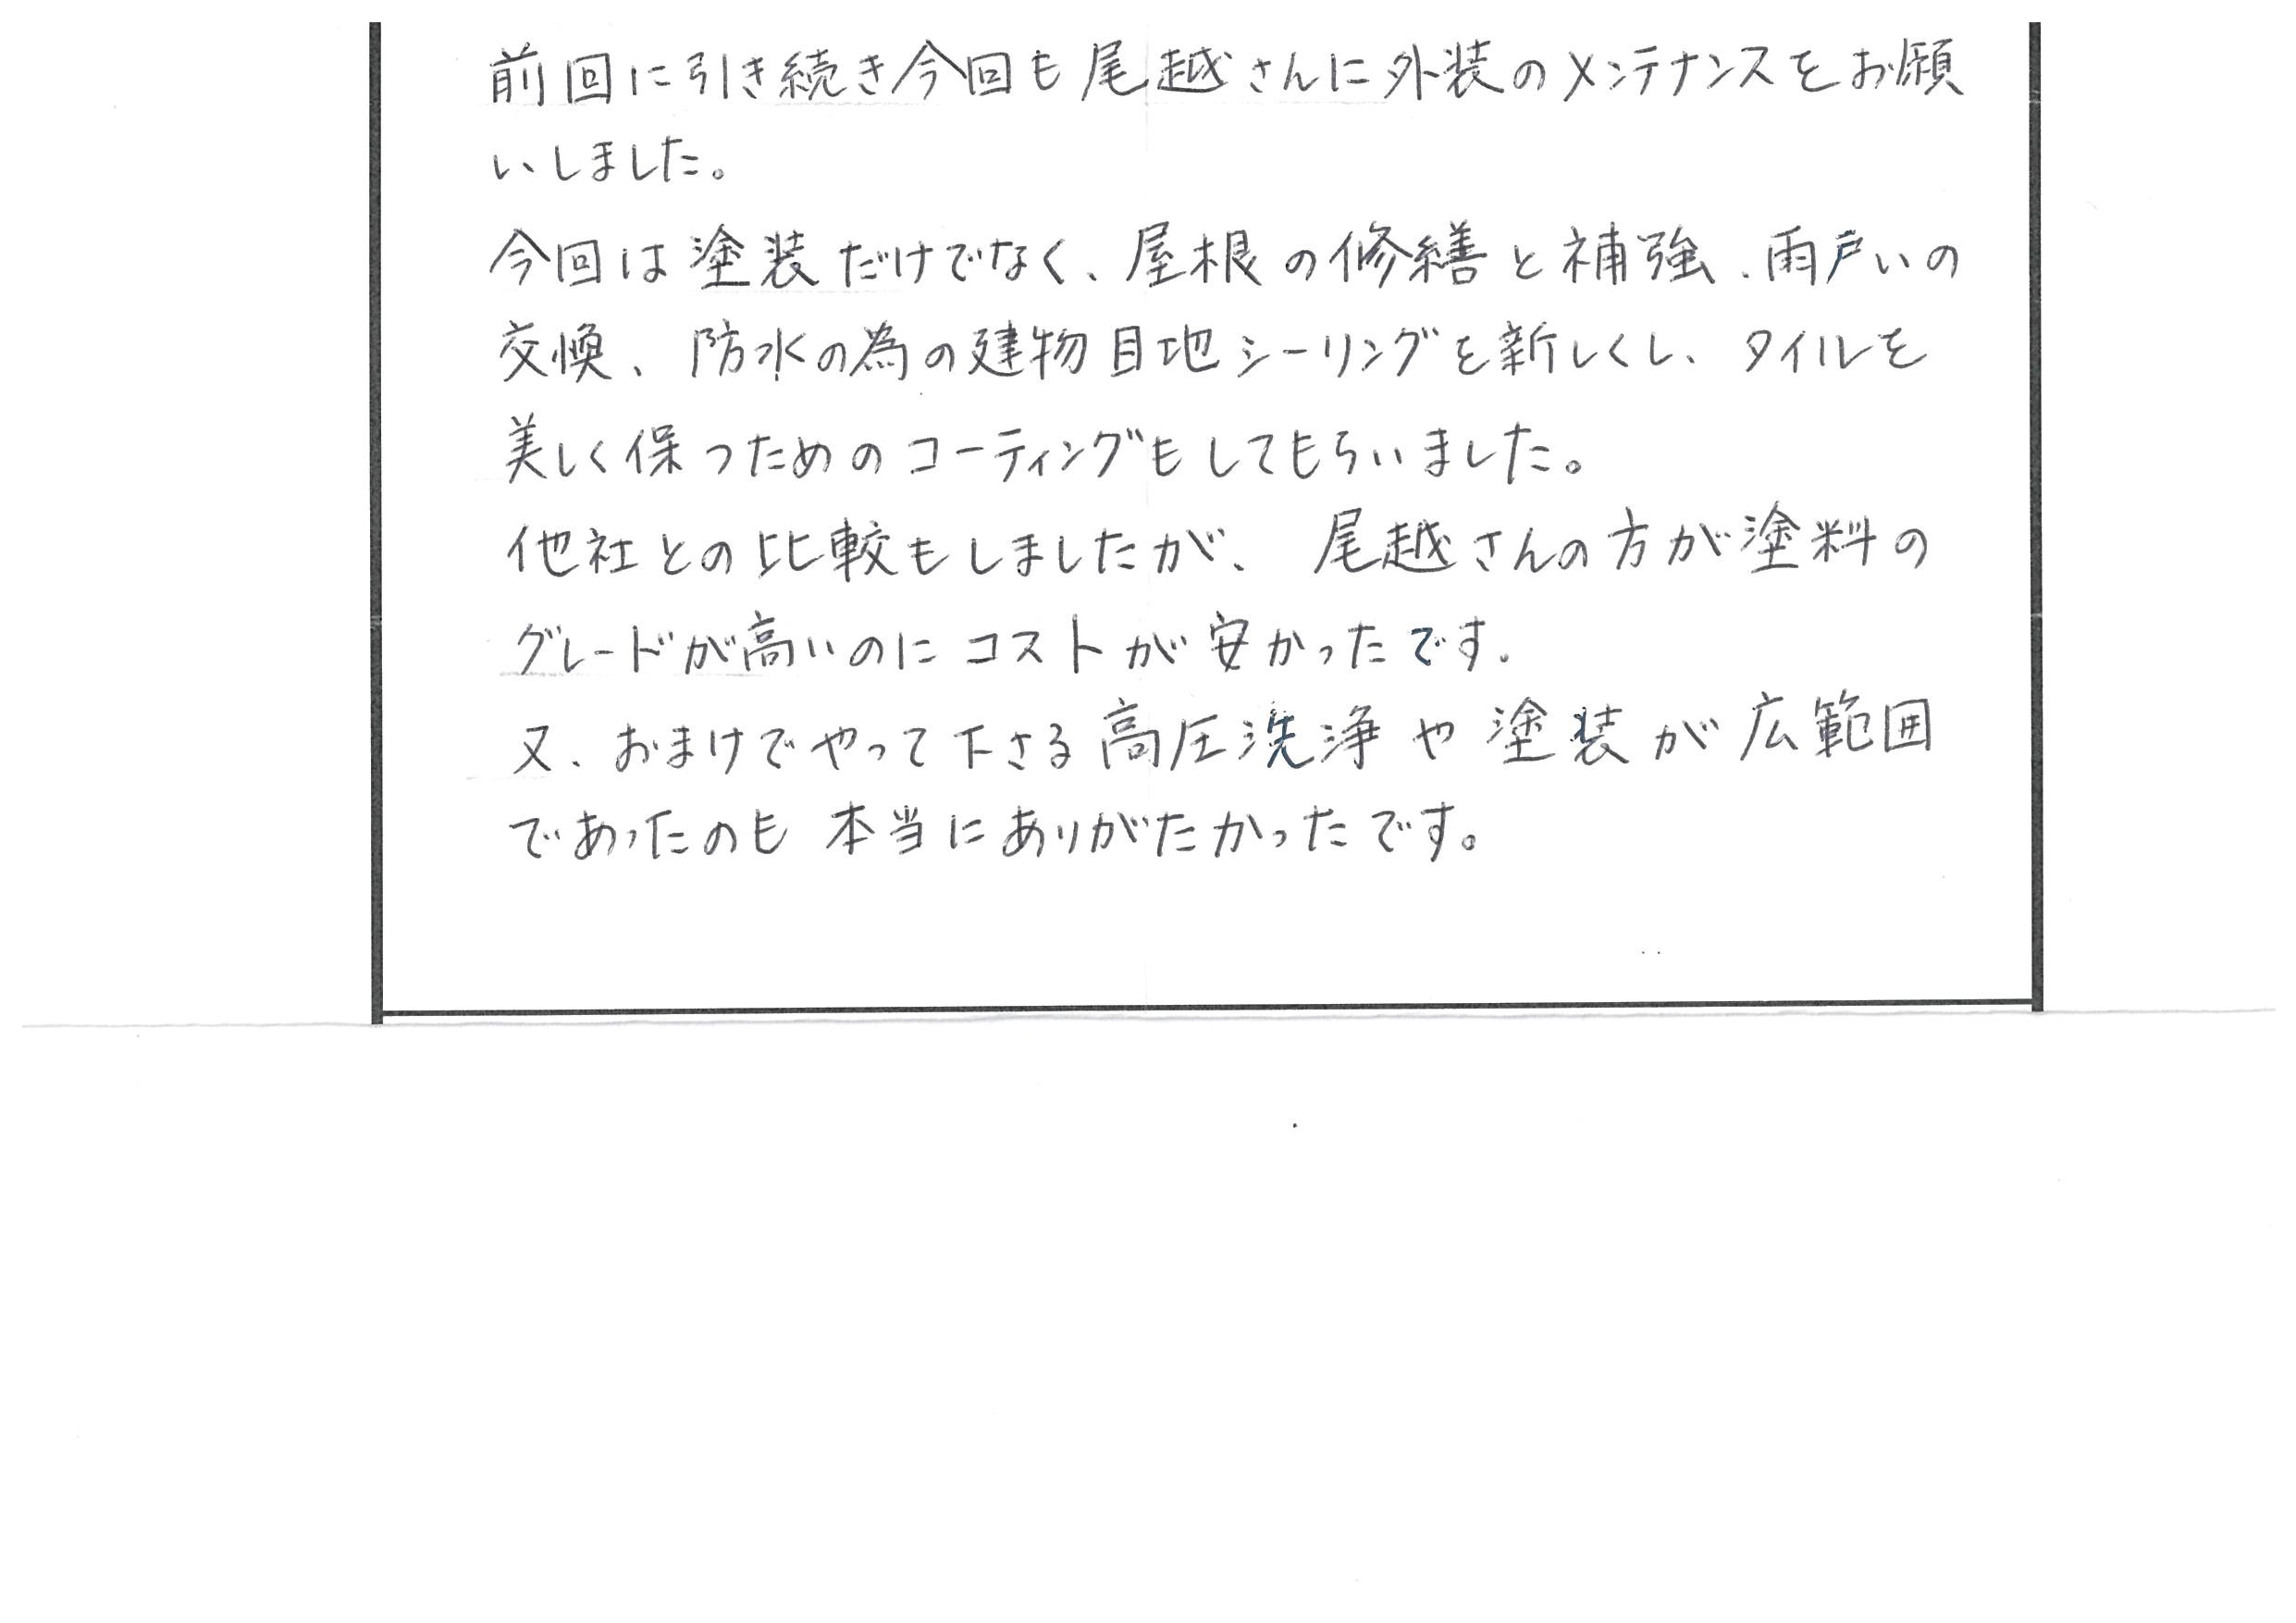 前回に引き続き今回も尾越さんに外装のメンテナンスをお願
いしました。
今回は塗装だけでなく、屋根の修繕と補強、雨戸いの
交換、防水の為の建物目地シーリングを新しくし、タイルを
美しく保つためのコーティングもしてもらいました。
他社との比較もしましたが、尾越さんの方が塗料の
グレードが高いのにコストが安かったです。
又、おまけでやって下さる高圧洗浄や塗装が広範囲
であったのも本当にありがたかったです。